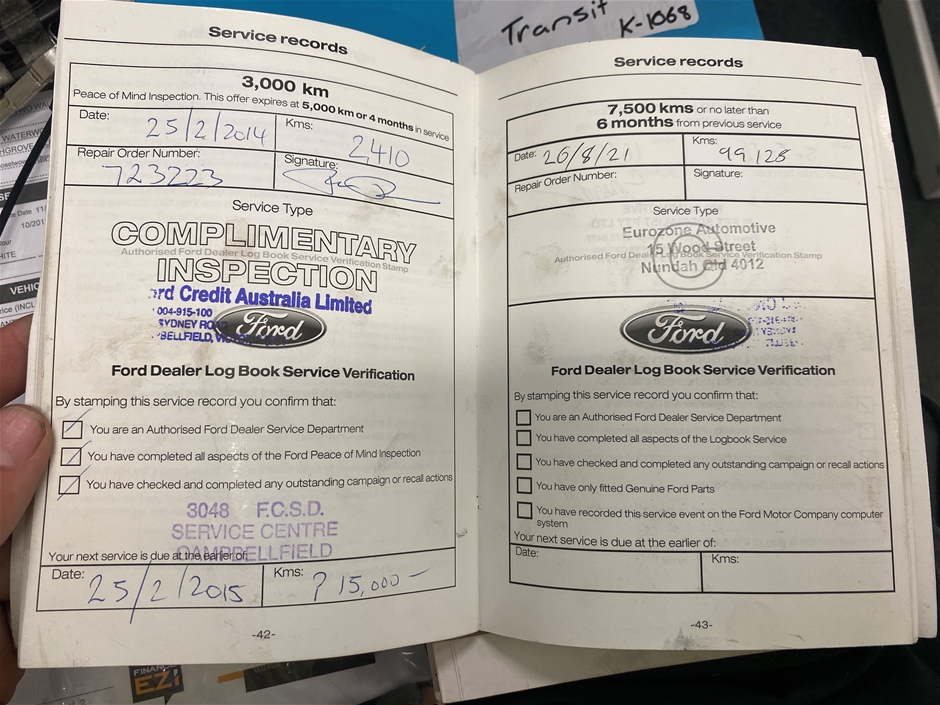 Transit
K-1068
Service records
3,000 km
Peace of Mind Inspection. This offer expires at 5,000 km or 4 months in service
Date: 25/2/2014 Kms: 2410
Repair Order Number: 723223 Signature:
Service Type
COMPLIMENTARY
Authorised Ford Dealer Log Book Service Verification Stamp
INSPECTION
rd Credit Australia Limited
004-915-100
SYDNEY
BELLFIELD,
Ford
Ford Dealer Log Book Service Verification
By stamping this service record you confirm that:
You are an Authorised Ford Dealer Service Department
You have completed all aspects of the Ford Peace of Mind Inspection
You have checked and completed any outstanding campaign or recall actions
3048 F.C.S.D.
SERVICE CENTRE
CAMPBELLFIELD
Your next service is due at the earlier of:
Date: 25/2/2015 Kms: 15,000
-42-
Service records
7,500 kms or no later than
6 months from previous service
Date: 26/8/21 Kms: 99128
Repair Order Number: Signature:
Service Type
Eurozone Automotive
15 Wood Street
Authorised Ford Dealer Log Book Service Verification Stamp
Nundah Qld 4012
Ford
Ford Dealer Log Book Service Verification
By stamping this service record you confirm that:
You are an Authorised Ford Dealer Service Department
You have completed all aspects of the Logbook Service
You have checked and completed any outstanding campaign or recall actions
You have only fitted Genuine Ford Parts
You have recorded this service event on the Ford Motor Company computer
system
Your next service is due at the earlier of:
Date: Kms:
-43-
FINANCE
EZi